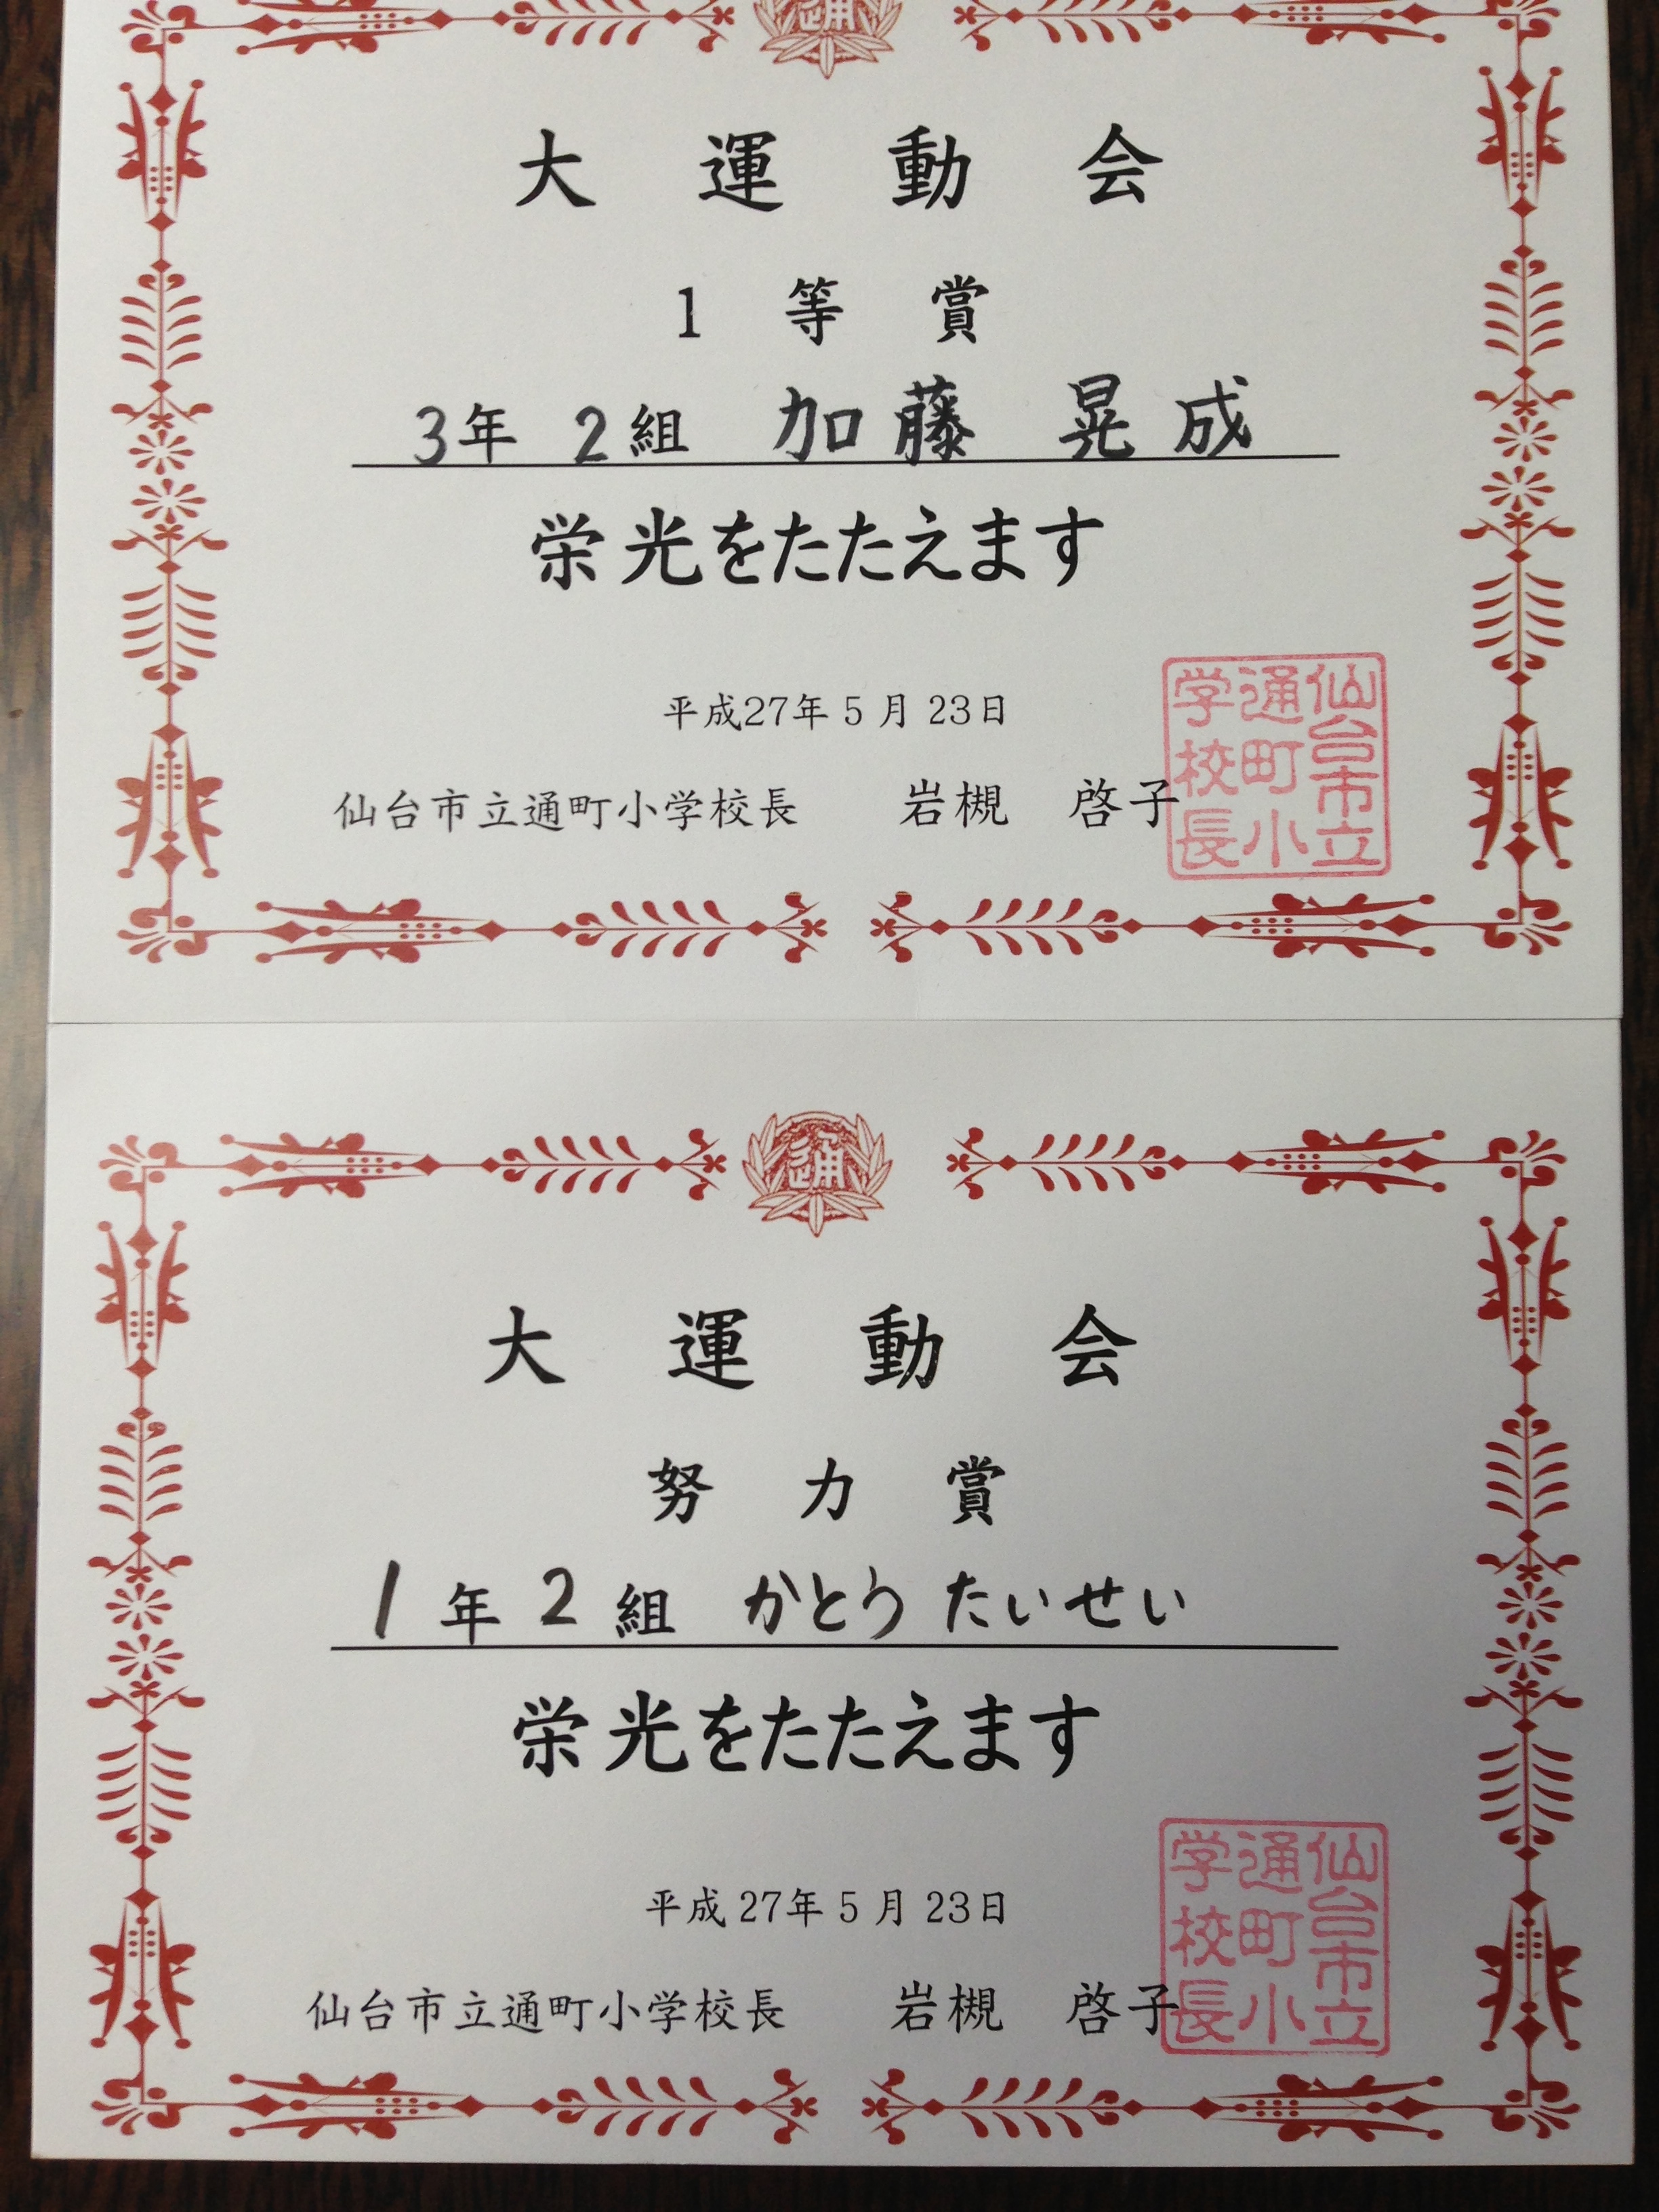 通
大運動会
1等賞
3年 2組 加藤 晃成
栄光をたたえます
平成27年5月23日
仙台市立通町小学校長 岩槻 啓子
仙台市立
通町小
学校長
通
大運動会
努力賞
1年2組 かとう たいせい
栄光をたたえます
平成27年5月23日
仙台市立通町小学校長 岩槻 啓子
仙台市立
通町小
学校長